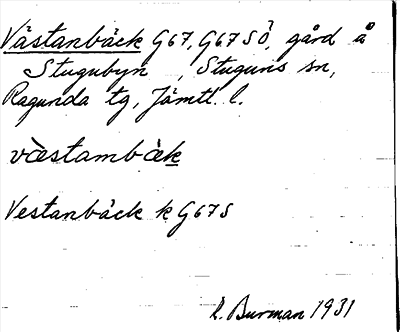 Västanbäck G67, G67SÖ, gård å
Stugubyn, Stuguns sn,
Ragunda tg, Jämtl. l.
västambäk
Vestanbäck k G67S
L. Burman 1931